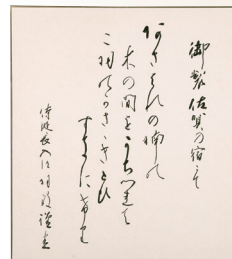 御製 佐賀の宿にて
あさはれの楠の
木の間をうちつれて
二羽のかささきとひ
すきにけり
侍従長入江相政謹書